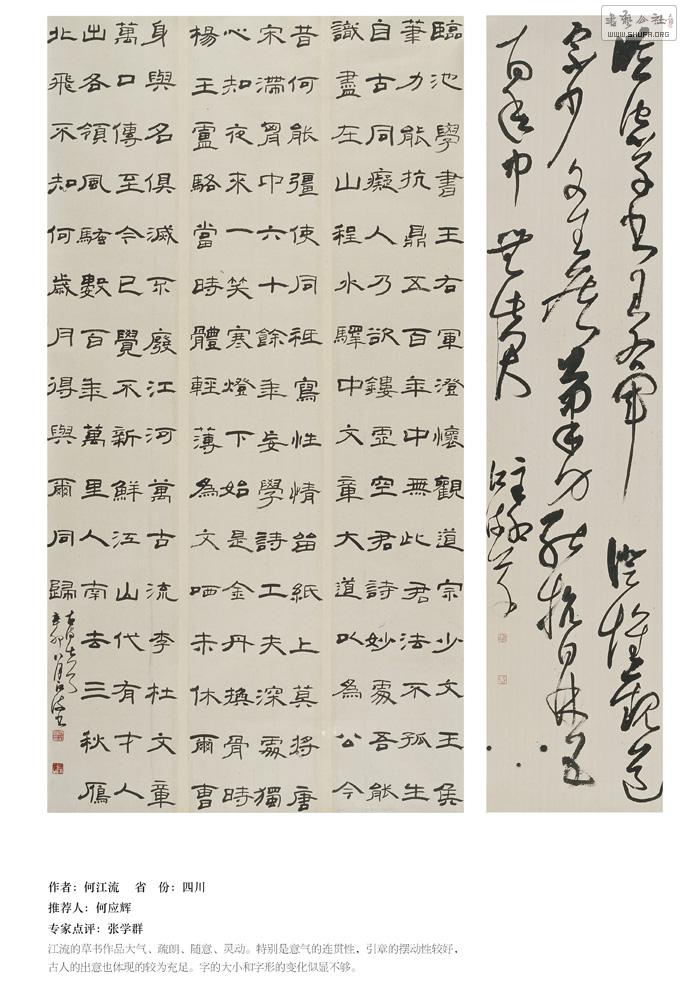 書藝公社
WWW.SHUFA.ORG
臨池學書王右軍澄懷觀道宗少文王侯
筆力能抗鼎五百年中無此君法不孤生
自古同癡人乃欲鏤虛空君詩妙處吾能
識盡在山程水驛中文章大道以為公今
昔何能彊使同祇寫性情留紙上莫將唐
宋滯胷中六十餘年妄學詩工夫深處獨
心知夜來一笑寒燈下始是金丹換骨時
楊王盧駱當時體輕薄為文哂未休爾曹
身與名俱滅不廢江河萬古流李杜文章
萬口傳至今已覺不新鮮江山代有才人
出各領風騷數百年萬里人南去三秋鴈
北飛不知何歲月得與爾同歸
辛卯八月江流
臨池學書王右軍澄懷觀道
宗少文王侯筆力能抗鼎五
百年中無此君
作者：何江流　省　份：四川
推荐人：何应辉
专家点评：张学群
江流的草书作品大气、疏朗、随意、灵动。特别是意气的连贯性，引章的摆动性较好，
古人的出意也体现的较为充足。字的大小和字形的变化似显不够。